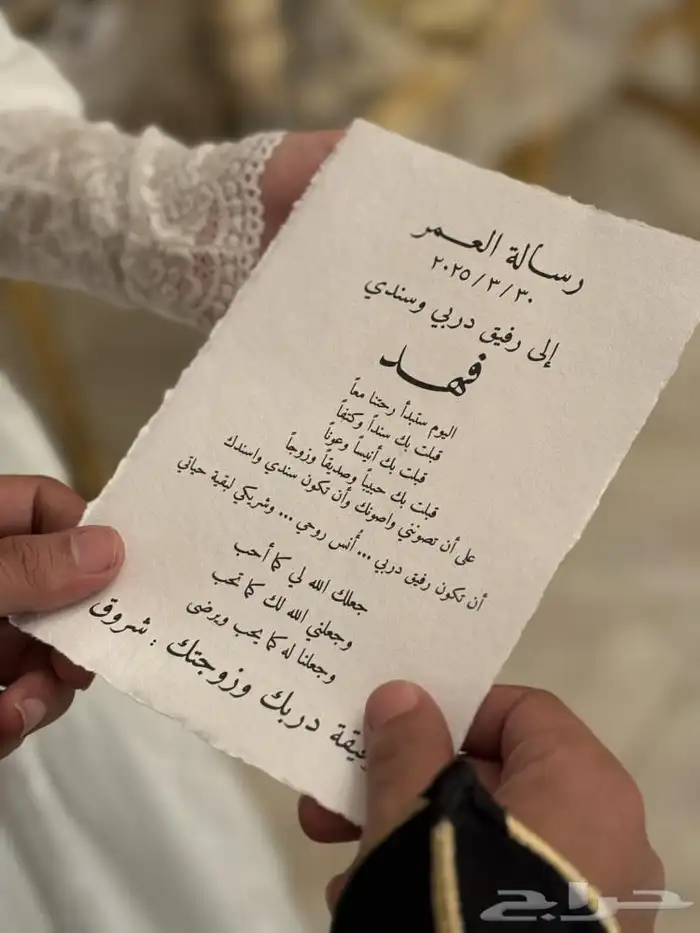 رسالة العمر
٢٠٢٥/٣/٣٠
إلى رفيق دربي وسندي
فهد
اليوم ستبدأ رحتنا معاً
قبلت بك سنداً وكتفاً
قبلت بك أنيساً وعوناً
قبلت بك حبيباً وصديقاً وزوجاً
على أن تصونني واصونك وأن تكون سندي واسندك
أن تكون رفيق دربي ... أُنس روحي ... وشريكي لبقية حياتي
جعلك الله لي كما أحب
وجعلني الله لك كما تحب
وجعلنا له كما يحب ويرضى
دربك وزوجتك : شروق
حراج